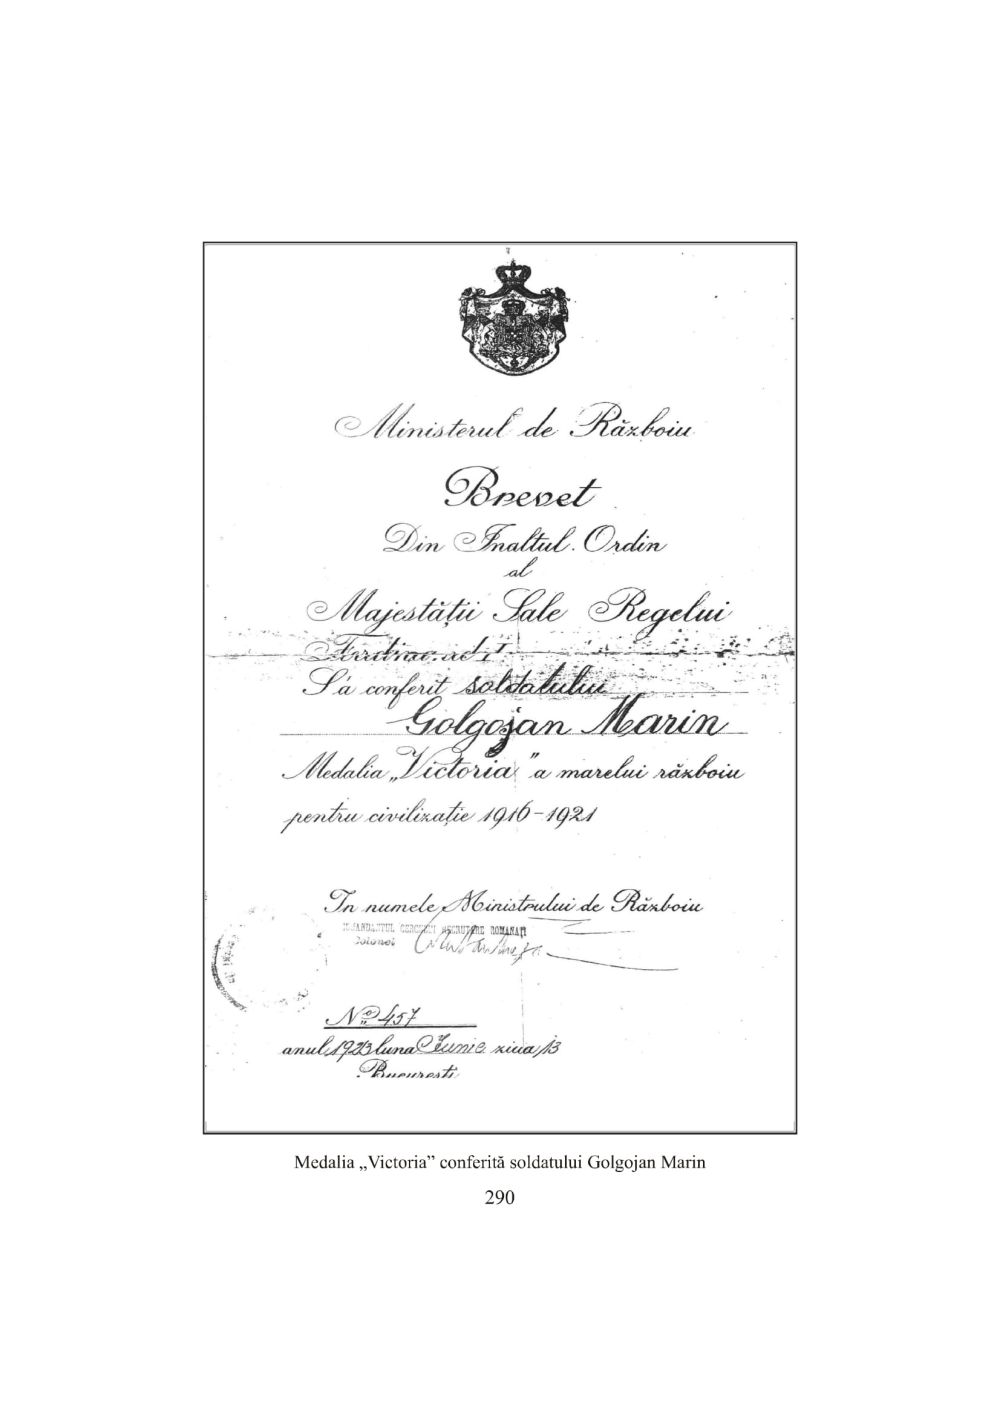 Ministerul de Războiu
Brevet
Din Inaltul Ordin
al
Majestății Sale Regelui
Ferdinand I
S'a conferit soldatului
Golgojan Marin
Medalia „Victoria" a marelui războiu
pentru civilizație 1916-1921
In numele Ministrului de Războiu
COMANDANTUL CERCULUI RECRUTARE ROMANAȚI
Colonel
No 457
anul 1923 luna Iunie ziua 13
Bucuresti
Medalia „Victoria” conferită soldatului Golgojan Marin
290